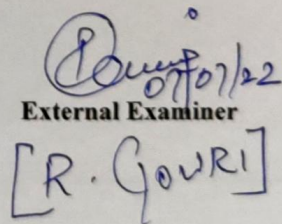 07/07/22
External Examiner
[R. GOURI]